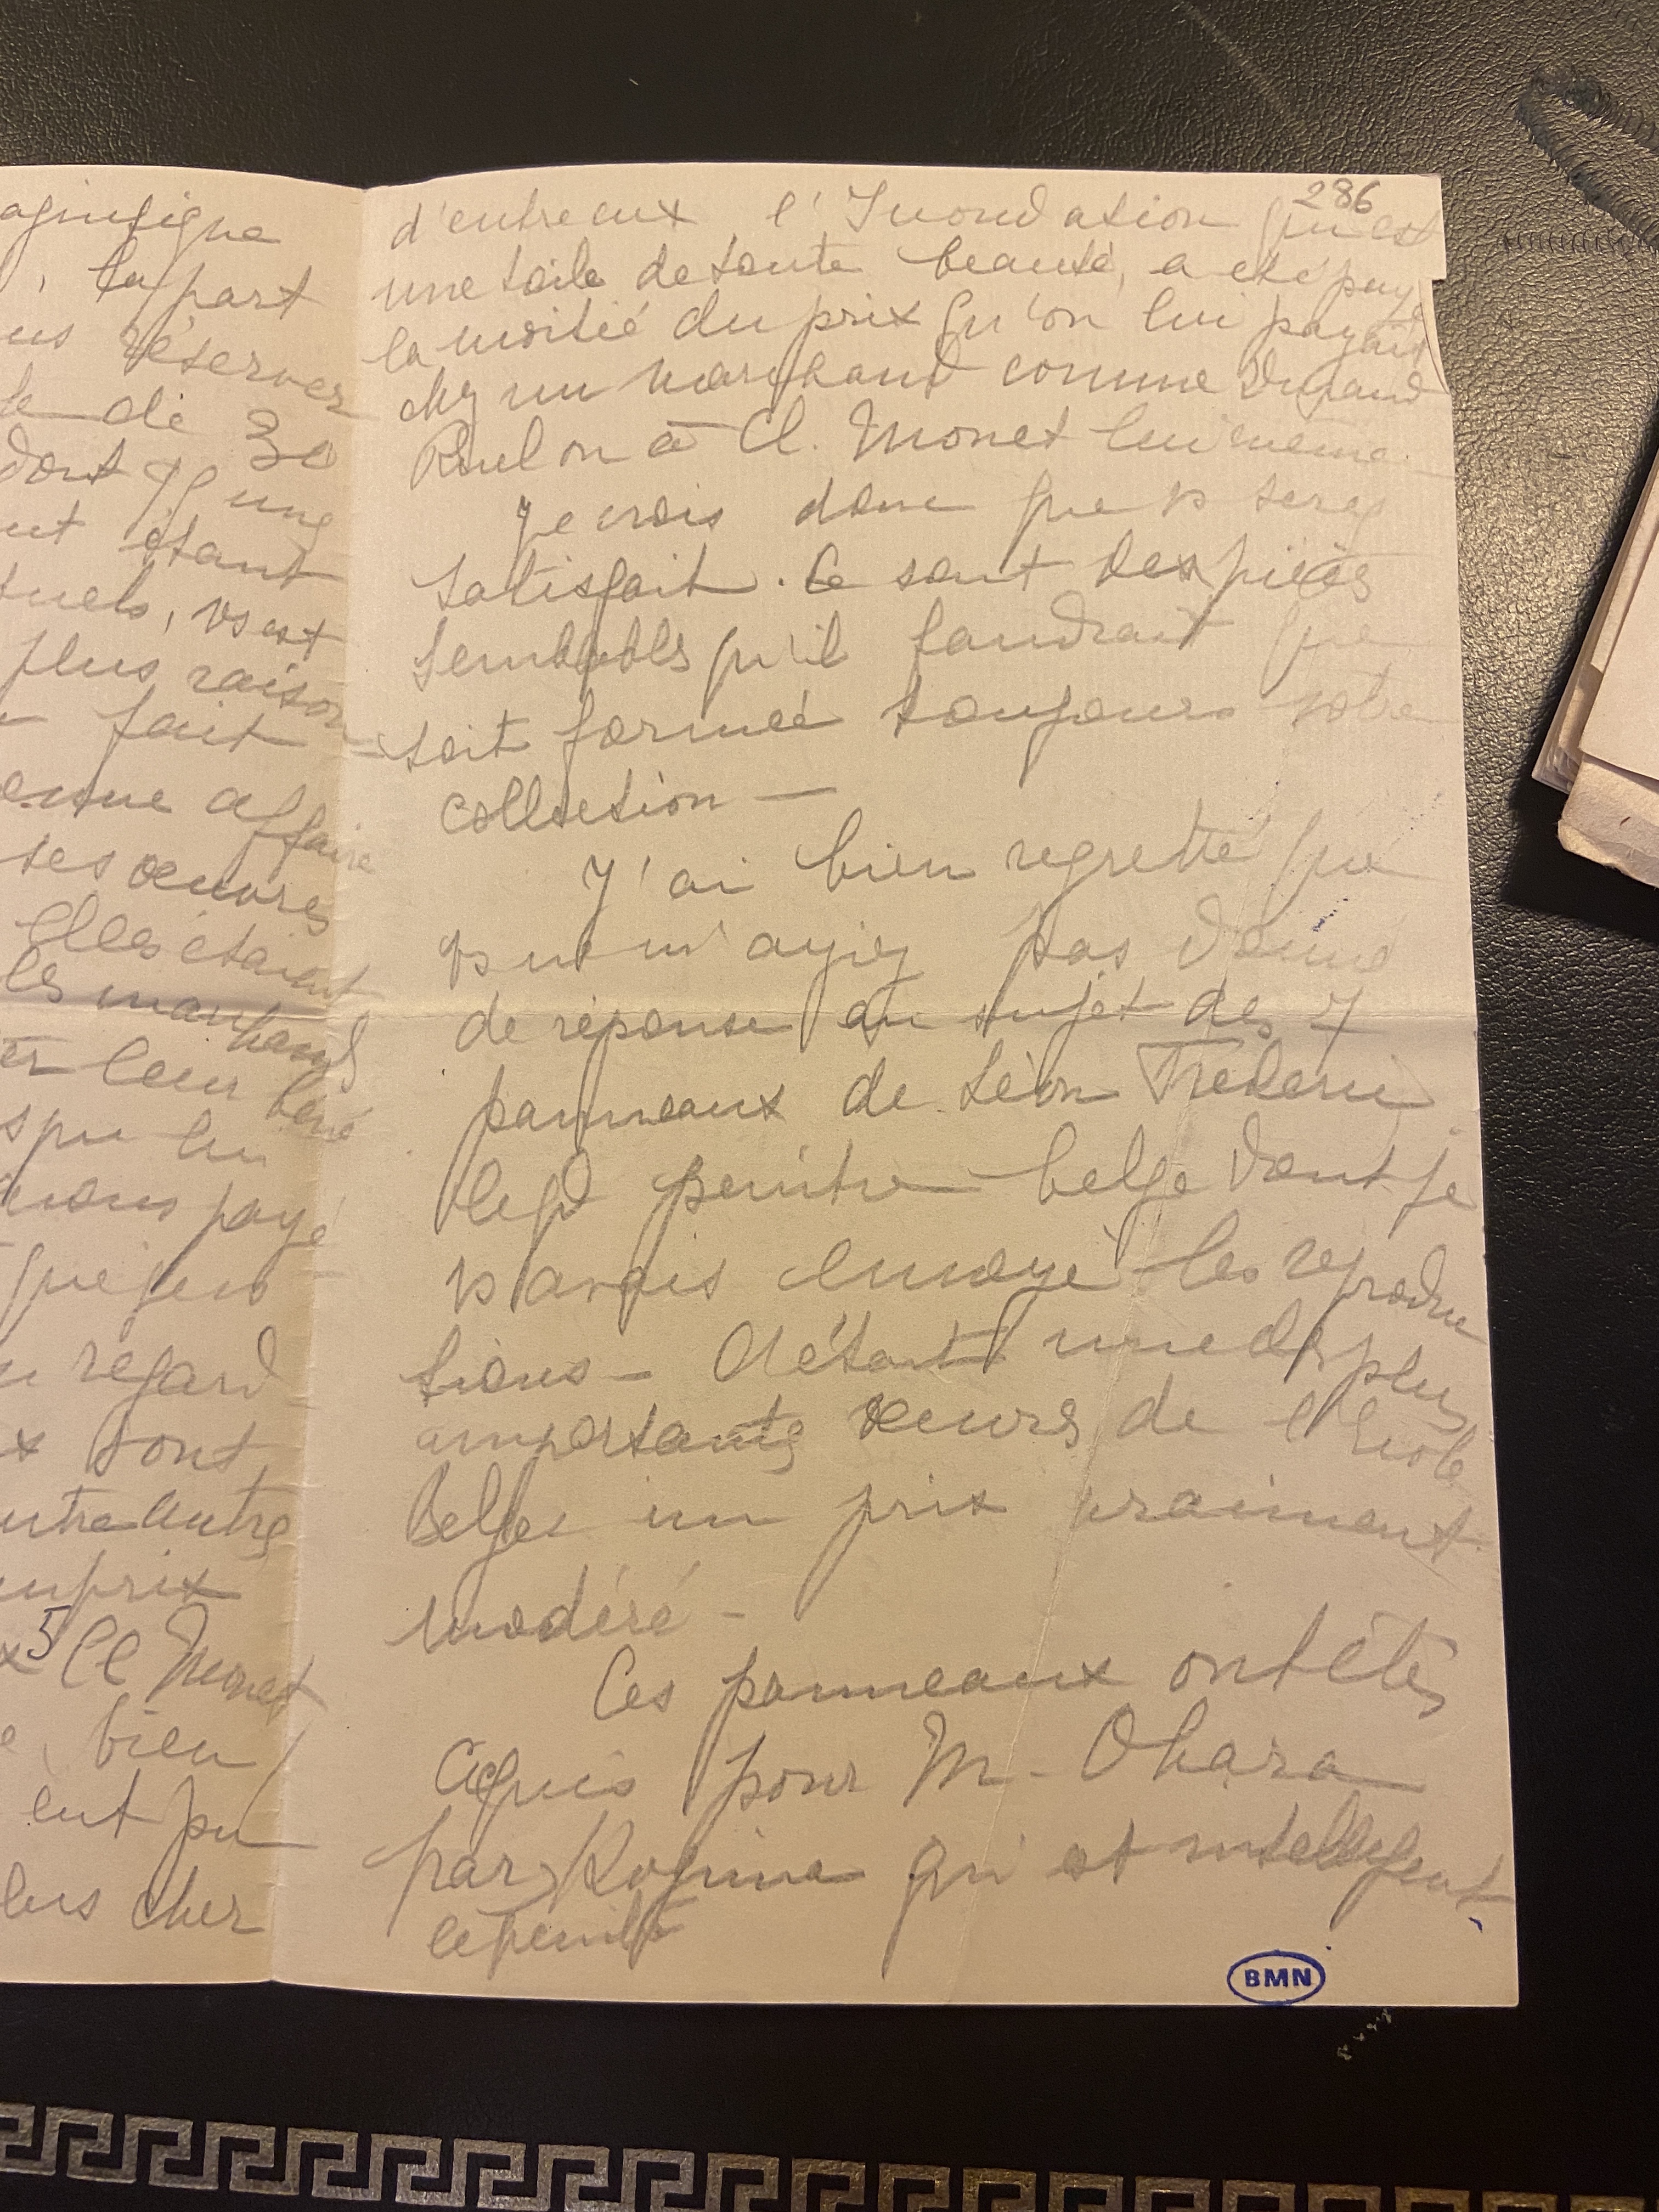 aginfique
, la part
us réserver
le de 30
dont qq une
ut étant
tuels, vs est
plus raison
fait
enne affaire
ses œuvres
Elles étaient
les marchands
er leur béné
s pu lu
avons payé
que je vs
u regard
x dont
ntre autres
un prix
x 5 Cl Monet
e bien
eut pu
lus cher
286
d'entre eux l'Inondation qui est
une toile de toute beauté, a été payé
la moitié du prix qu'on lui payait
chez un marchand comme Durand
Ruel ou à Cl. Monet lui même.
Je crois donc que vs serez
satisfait. Ce sont des pièces
semblables qu'il faudrait que
soit formée toujours votre
collection —
J'ai bien regretté que
vs ne m'ayiez pas donné
de réponse au sujet des 7
panneaux de Léon Frederic
le gd peintre belge dont je
vs avais envoyé les reproduc
tions — C'était une des plus
importantes œuvres de l'Ecole
Belge un prix vraiment
modéré —
Ces panneaux ont étés
acquis pour M. Ohara
par Kojima qui est intelligent
le peintre
BMN